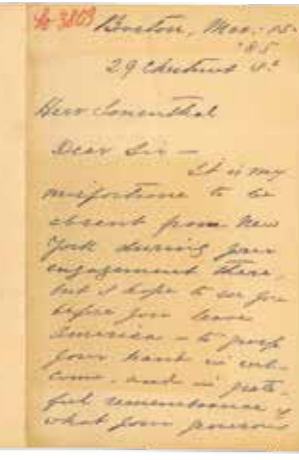 Boston, Mar: 15.
'85
29 Chestnut St
Herr Sonenthal
Dear Sir —
It is my
misfortune to be
absent from New
York during your
engagement there,
but I hope to see you
before you leave
America — to grasp
your hand in wel-
come. and in grate-
ful remembrance of
what your generous